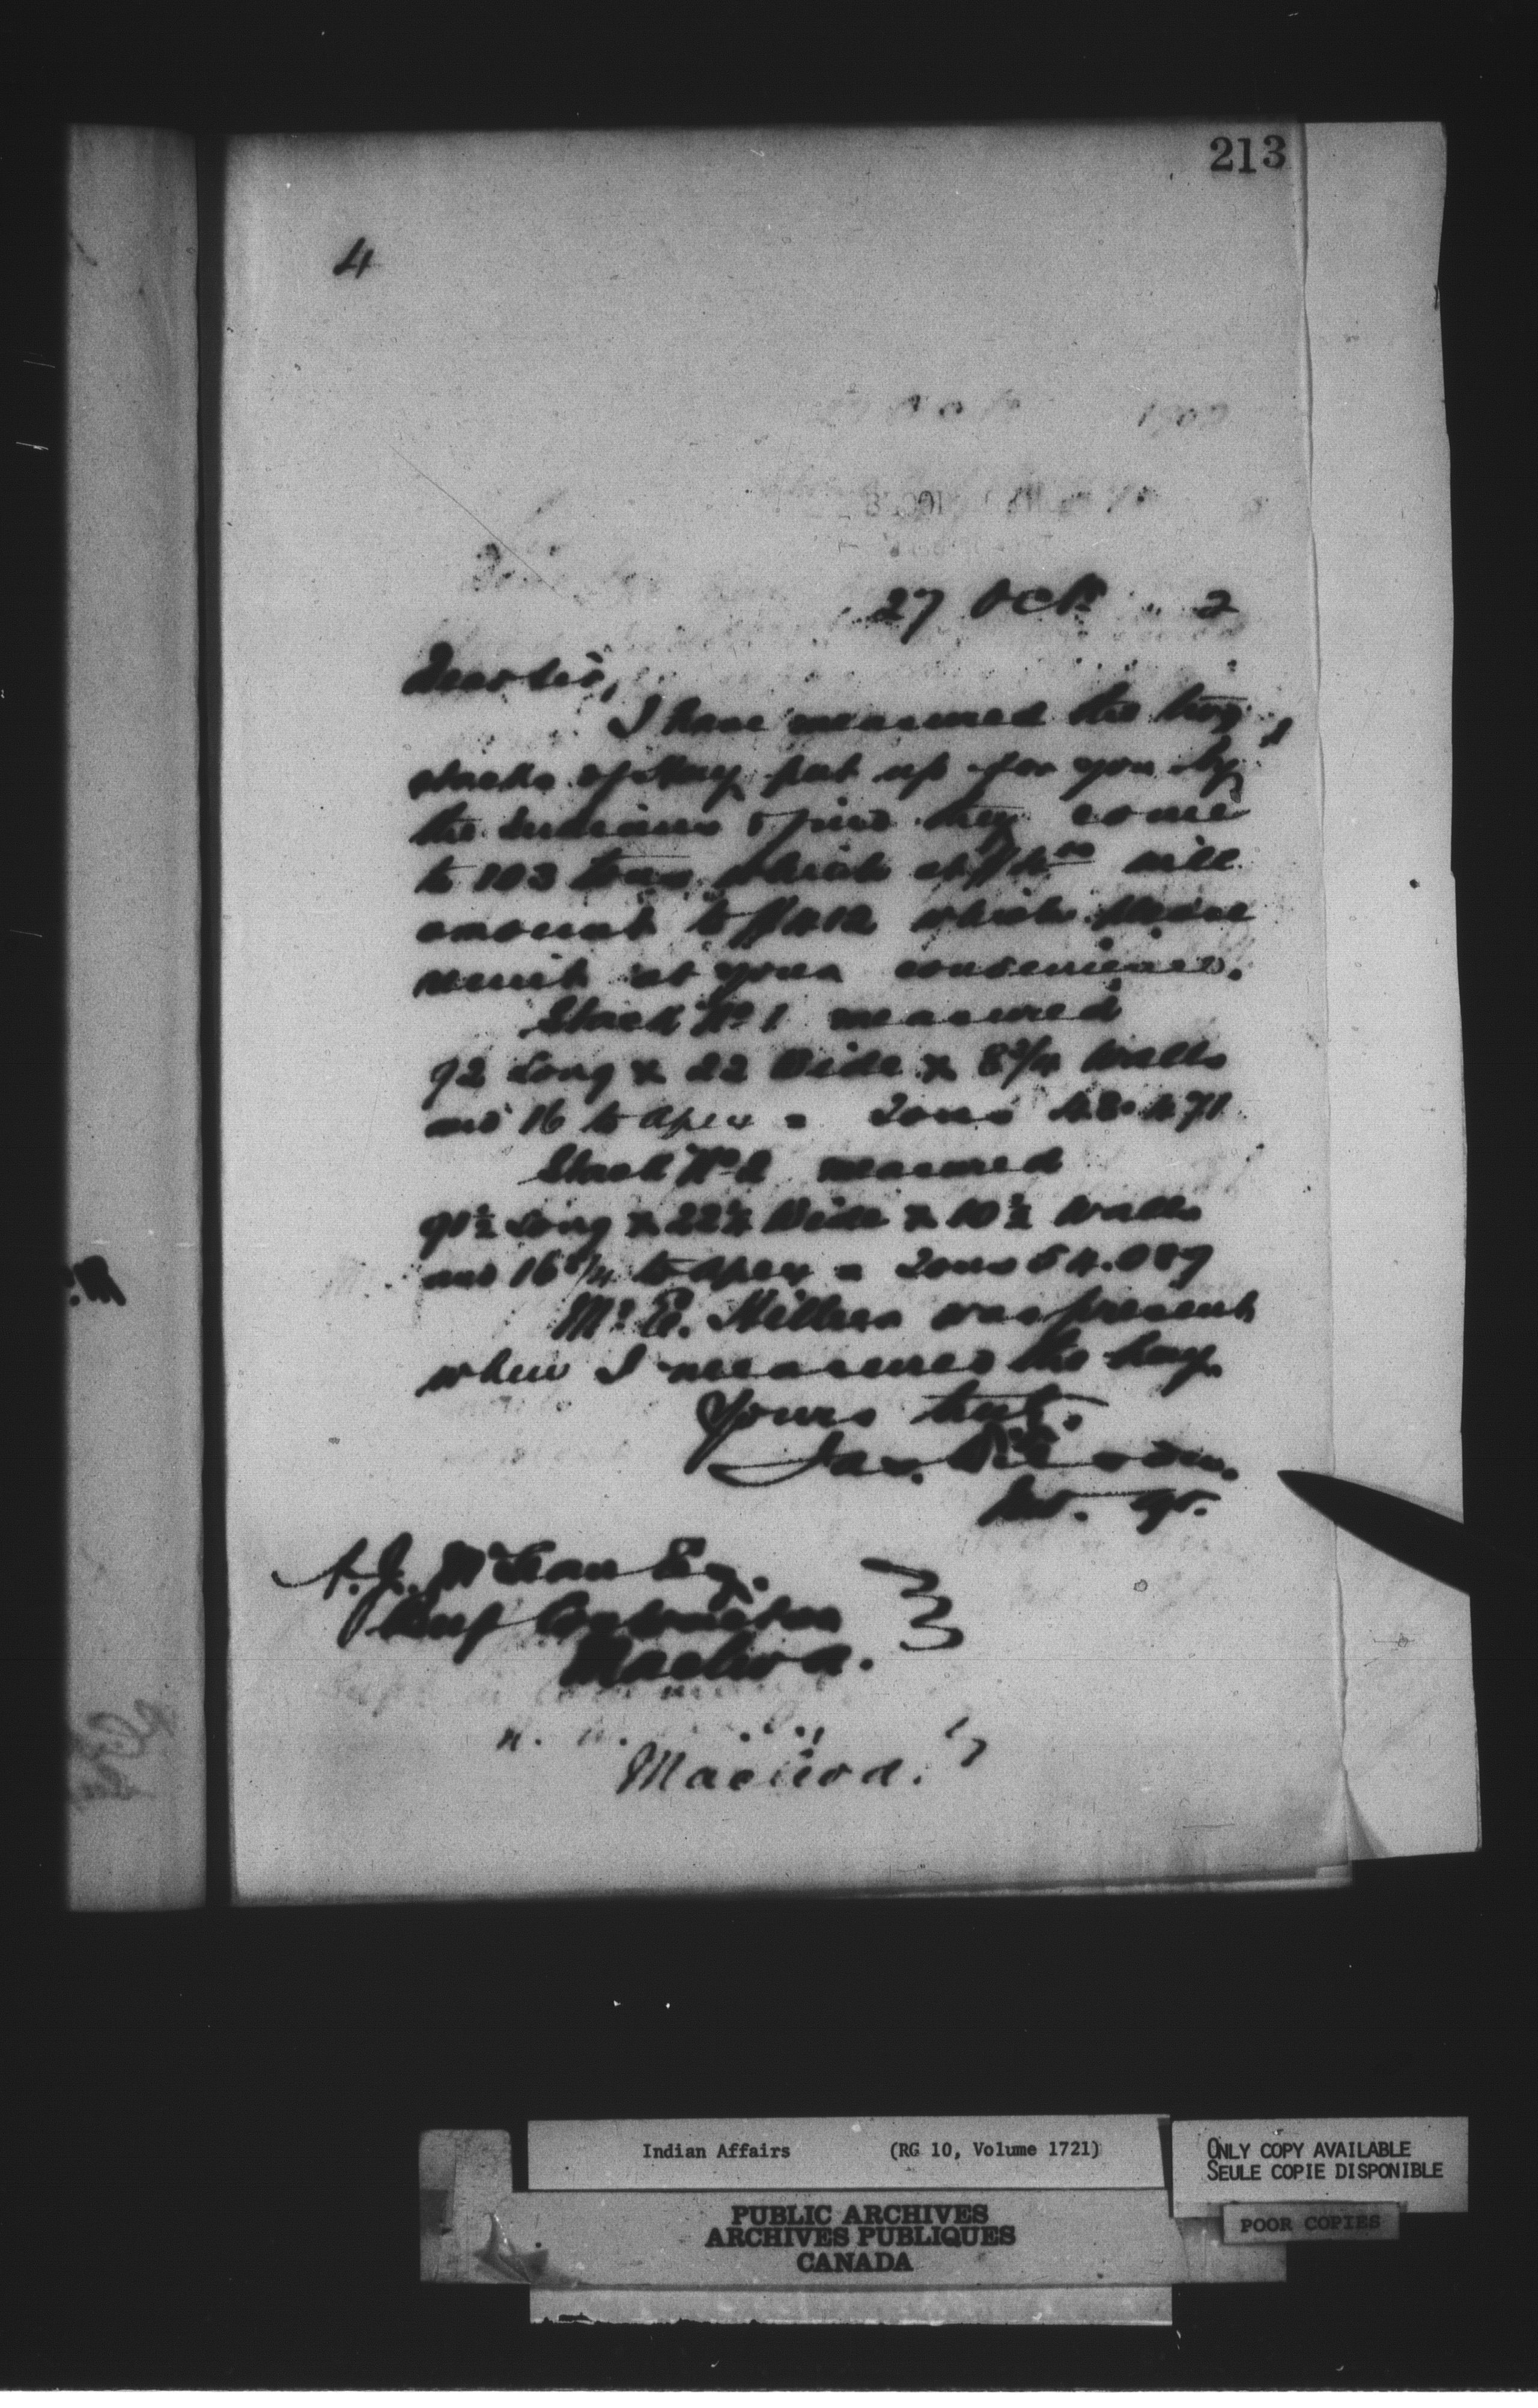 213
4
27 Oct. 2
Dear Sir,
I have measured the two
stacks of Hay put up for you by
the Indians & find they come
to 103 tons which at $4.00 will
amount to $412 which please
remit at your convenience.
Stack No 1 measured
92 Long x 22 Wide x 8 3/4 Walls
and 16 to apex = Tons 48.471
Stack No 2 measured
91 1/2 Long x 22 1/2 Wide x 10 1/2 Walls
and 16 3/4 to apex = Tons 54.089
Mr E. Hillier was present
when I measured the hay.
Yours truly.
Jas. Wilson.
Ind. Agt.
A. J. McLean Esq.
Beef Contractor
Macleod.
Macleod.
Indian Affairs (RG 10, Volume 1721)
ONLY COPY AVAILABLE
SEULE COPIE DISPONIBLE
POOR COPIES
PUBLIC ARCHIVES
ARCHIVES PUBLIQUES
CANADA